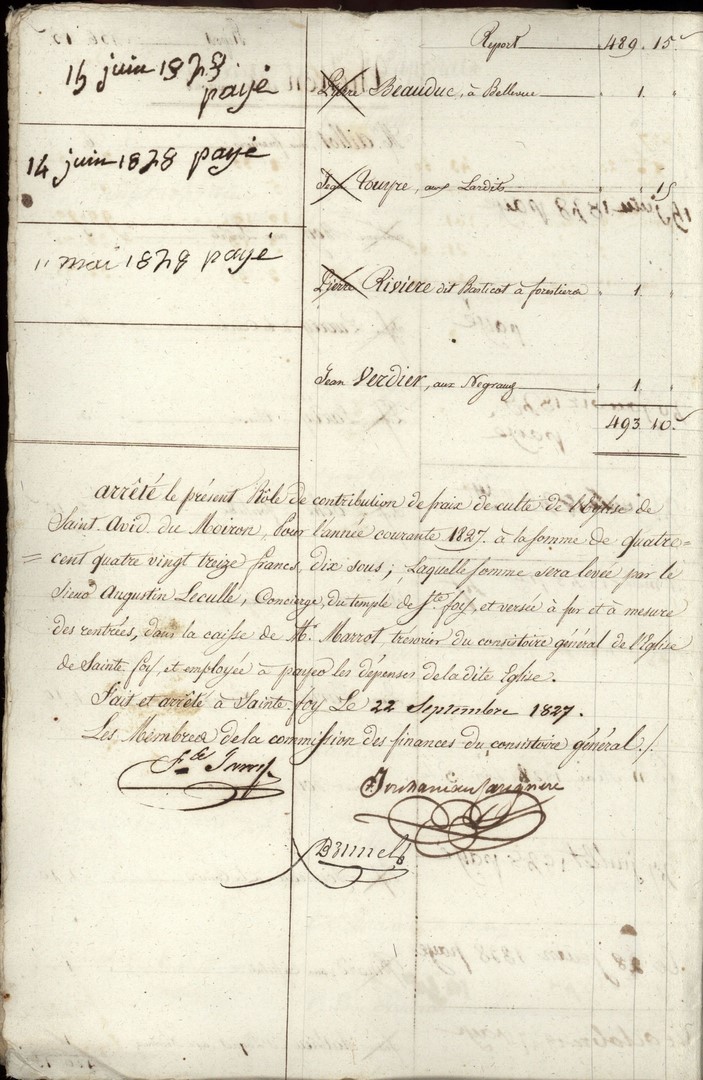 Report 489. 15.
15 juin 1828
payé
Pierre Beauduc, à Bellevue 1. "
14 juin 1828 payé
Jean Touyre, aux Lardits " 15
11 mai 1828 payé
Pierre Rivière dit Basticot à forestiere 1. "
Jean Verdier, aux Negrauds 1. "
493 10.
arrêté le présent Rôle de contribution de fraix de culte de l'Eglise de
Saint. Avid. du Moiron, Pour l'année courante 1827. à la somme de quatre=
=cent quatre vingt treize francs, dix sous; Laquelle somme sera levée par le
Sieur Augustin Leculle, Concierge, du temple de Ste foy, et versée à fur et à mesure
des rentrées, dans la caisse de Mr. Marrot, trésorier du consistoire général de l'Eglise
de Sainte foy, et employée à payer les dépenses de la dite Eglise.
Fait et arrêté à Sainte. foy Le 22 Septembre 1827.
Les Membres de la commission des finances du consistoire général./.
Brunet